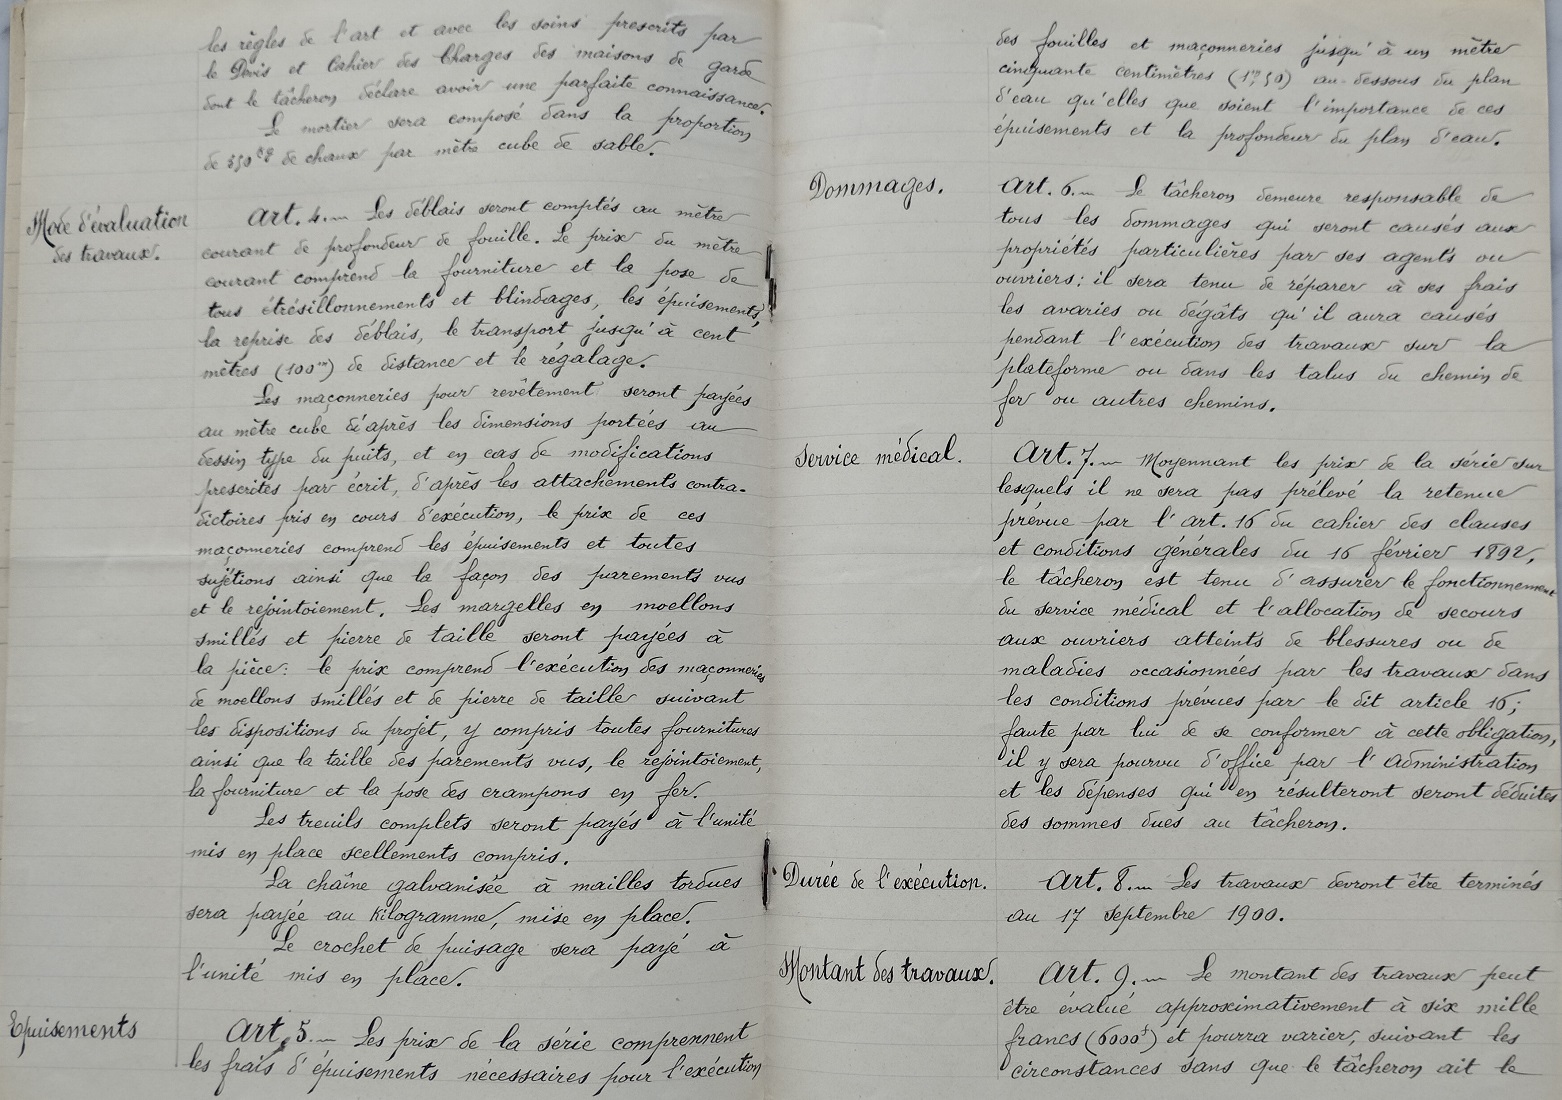 les règles de l'art et avec les soins prescrits par
le Devis et Cahier des Charges des maisons de garde
dont le tâcheron déclare avoir une parfaite connaissance.
Le mortier sera composé dans la proportion
de 350 kg de chaux par mètre cube de sable.
Mode d'évaluation
des travaux.
Art. 4. — Les déblais seront comptés au mètre
courant de profondeur de fouille. Le prix du mètre
courant comprend la fourniture et la pose de
tous étrésillonnements et blindages, les épuisements,
la reprise des déblais, le transport jusqu'à cent
mètres (100m) de distance et le régalage.
Les maçonneries pour revêtement seront payées
au mètre cube d'après les dimensions portées au
dessin type du puits, et en cas de modifications
prescrites par écrit, d'après les attachements contra-
dictoires pris en cours d'exécution, le prix de ces
maçonneries comprend les épuisements et toutes
sujétions ainsi que la façon des parements vus
et le rejointoiement. Les margelles en moellons
smillés et pierre de taille seront payées à
la pièce: le prix comprend l'exécution des maçonneries
de moellons smillés et de pierre de taille suivant
les dispositions du projet, y compris toutes fournitures
ainsi que la taille des parements vus, le rejointoiement,
la fourniture et la pose des crampons en fer.
Les treuils complets seront payés à l'unité
mis en place scellements compris.
La chaîne galvanisée à mailles tordues
sera payée au kilogramme, mise en place.
Le crochet de puisage sera payé à
l'unité mis en place.
Epuisements
Art. 5. — Les prix de la série comprennent
les frais d'épuisements nécessaires pour l'exécution
des fouilles et maçonneries jusqu'à un mètre
cinquante centimètres (1m,50) au-dessous du plan
d'eau qu'elles que soient l'importance de ces
épuisements et la profondeur du plan d'eau.
Dommages.
Art. 6. — Le tâcheron demeure responsable de
tous les dommages qui seront causés aux
propriétés particulières par ses agents ou
ouvriers; il sera tenu de réparer à ses frais
les avaries ou dégâts qu'il aura causés
pendant l'exécution des travaux sur la
plateforme ou dans les talus du chemin de
fer ou autres chemins.
Service médical.
Art. 7. — Moyennant les prix de la série sur
lesquels il ne sera pas prélevé la retenue
prévue par l'art. 16 du cahier des clauses
et conditions générales du 16 février 1892,
le tâcheron est tenu d'assurer le fonctionnement
du service médical et l'allocation de secours
aux ouvriers atteints de blessures ou de
maladies occasionnées par les travaux dans
les conditions prévues par le dit article 16;
faute par lui de se conformer à cette obligation,
il y sera pourvu d'office par l'Administration
et les dépenses qui en résulteront seront déduites
des sommes dues au tâcheron.
Durée de l'exécution.
Art. 8. — Les travaux devront être terminés
au 17 septembre 1900.
Montant des travaux.
Art. 9. — Le montant des travaux peut
être évalué approximativement à six mille
francs (6000f) et pourra varier, suivant les
circonstances sans que le tâcheron ait le